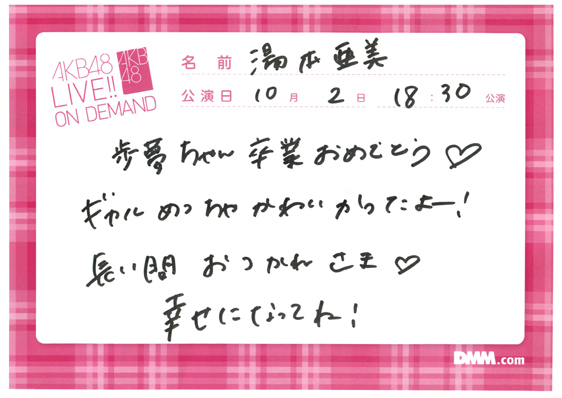 AKB48
LIVE!!
ON DEMAND
AKB
48
名前 湯本亜美
公演日 10月 2日 18:30公演
歩夢ちゃん 卒業おめでとう♡
ギャル めっちゃ かわいかったよー!
長い間 おつかれさま♡
幸せになってね!
DMM.com